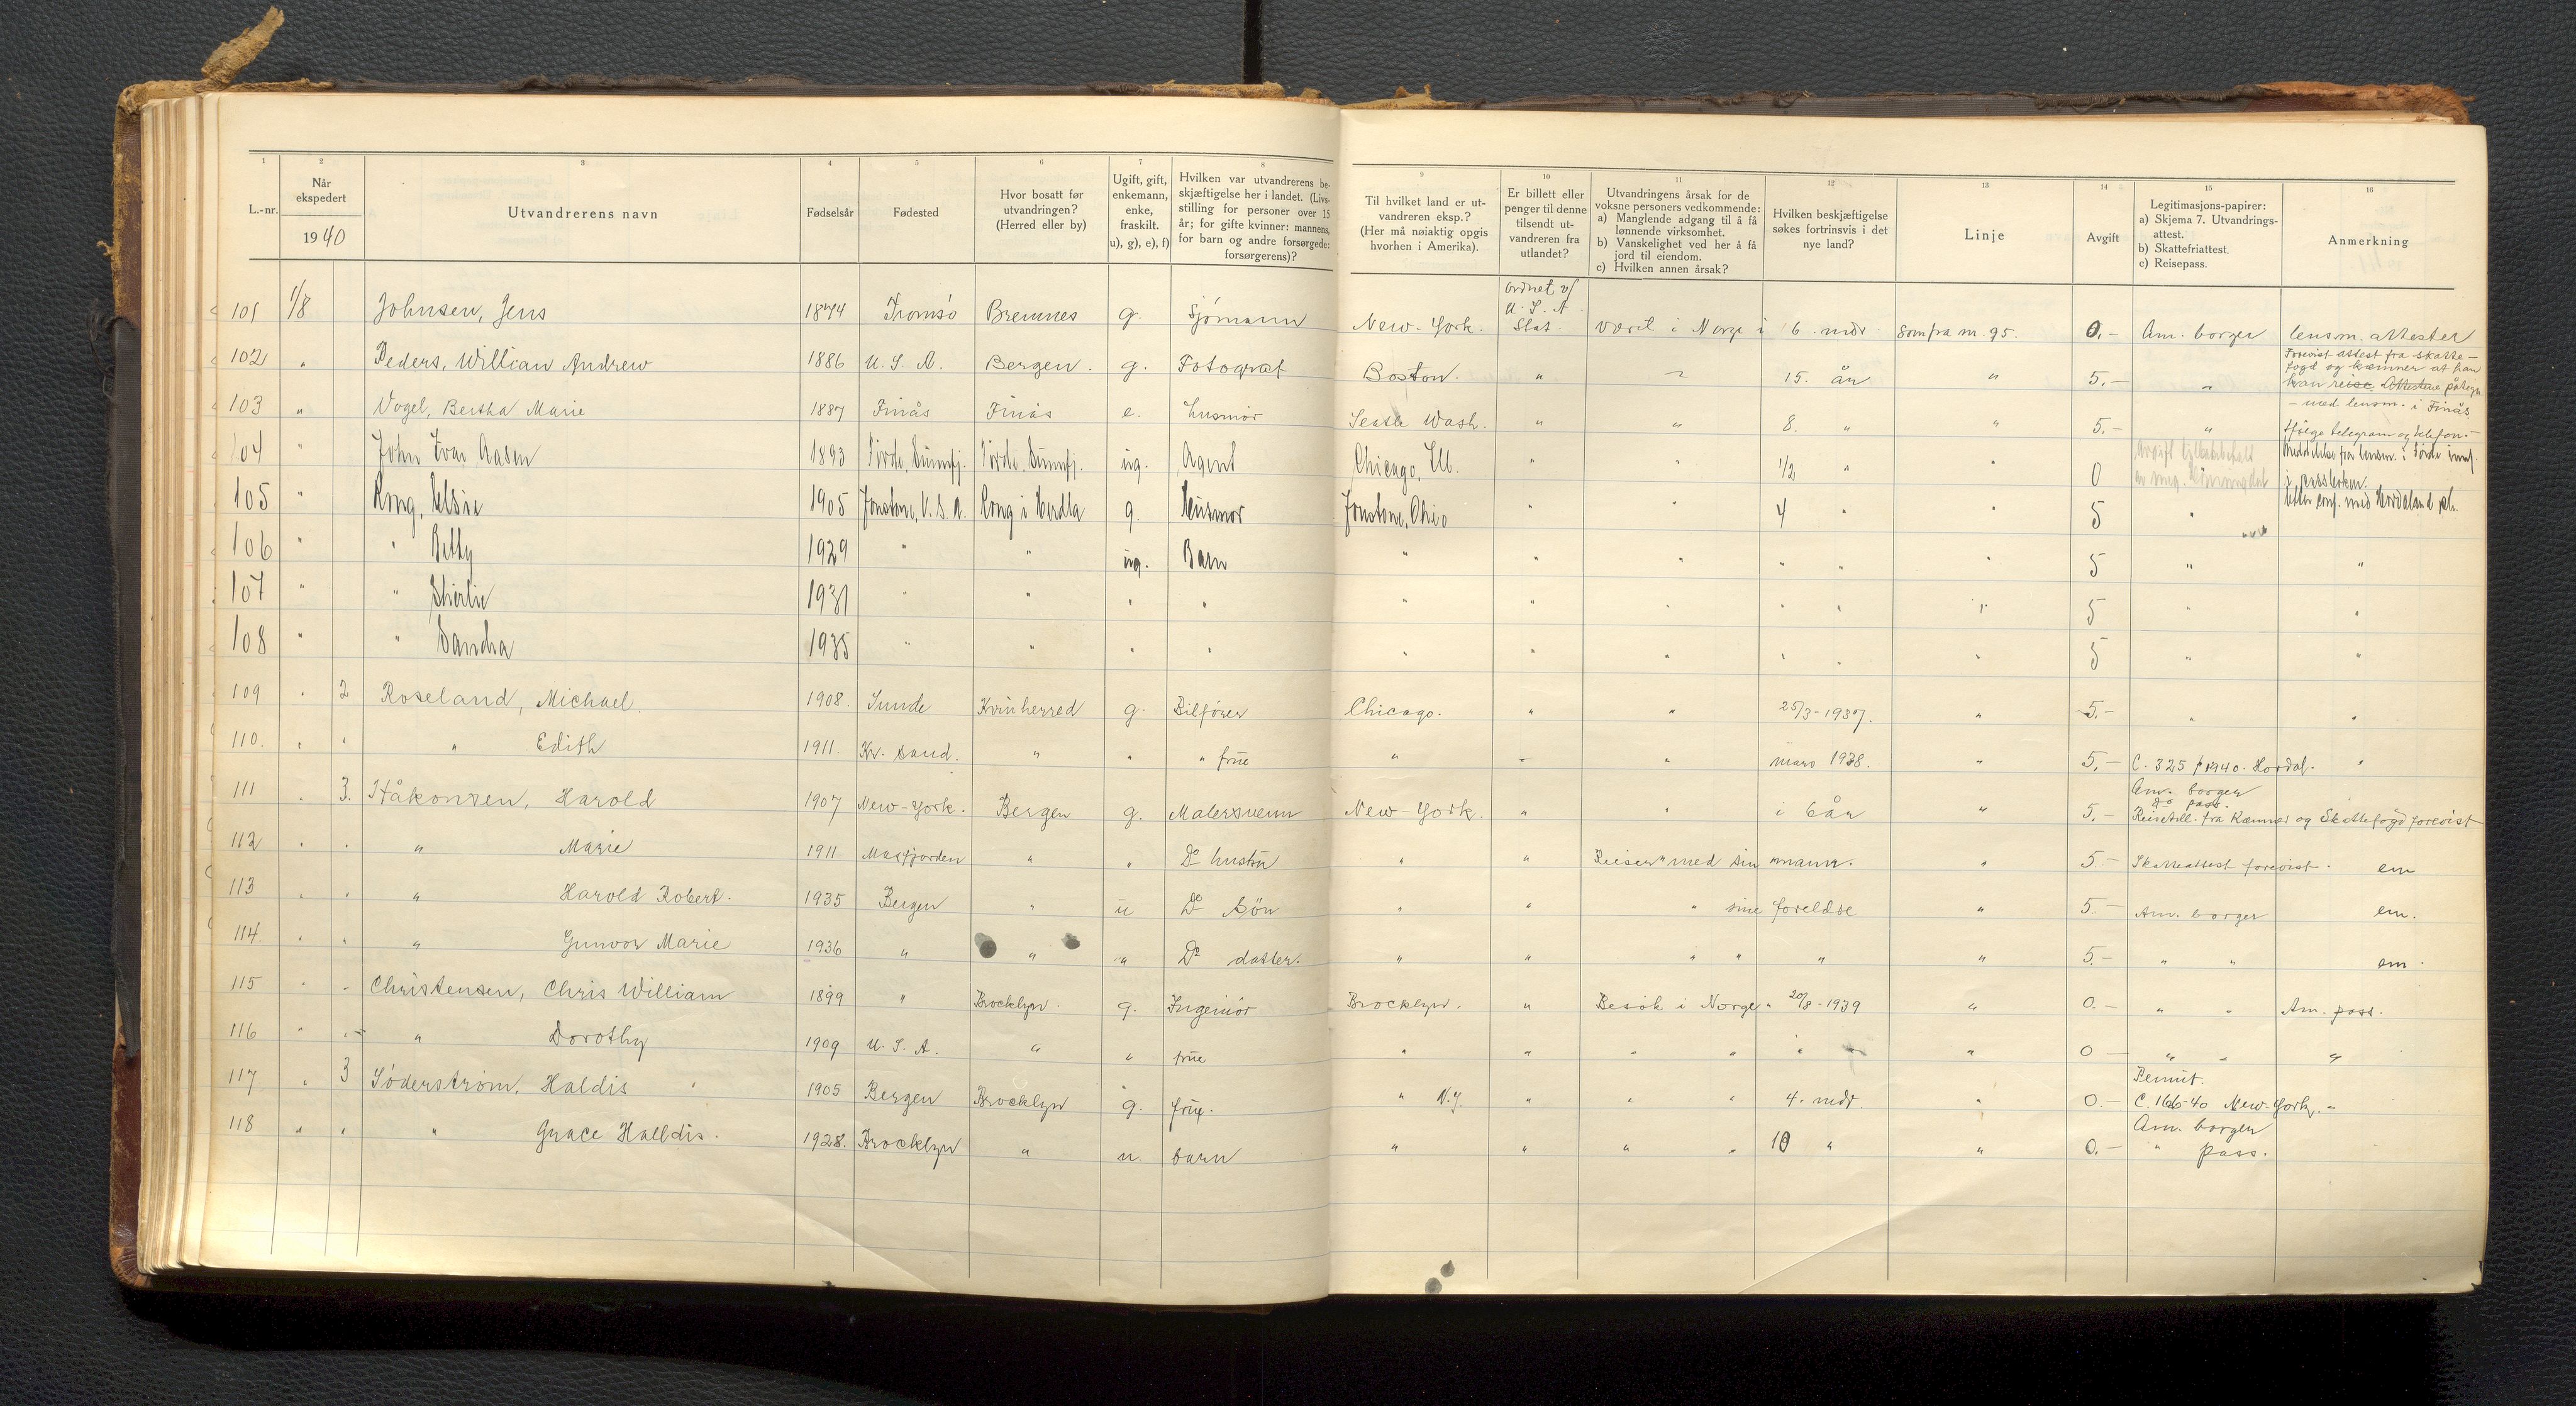 1 2 3 4 5 6 7 8 9 10 11 12 13 14 15 16
L.-nr. | Når ekspedert 1940 | Utvandrerens navn | Fødselsår | Fødested | Hvor bosatt før utvandringen? (Herred eller by) | Ugift, gift, enkemann, enke, fraskilt. u), g), e), f) | Hvilken var utvandrerens beskjæftigelse her i landet. (Livsstilling for personer over 15 år; for gifte kvinner: mannens, for barn og andre forsørgede: forsørgerens)? | Til hvilket land er utvandreren eksp.? (Her må nøiaktig opgis hvorhen i Amerika). | Er billett eller penger til denne tilsendt utvandreren fra utlandet? | Utvandringens årsak for de voksne personers vedkommende: a) Manglende adgang til å få lønnende virksomhet. b) Vanskelighet ved her å få jord til eiendom. c) Hvilken annen årsak? | Hvilken beskjæftigelse søkes fortrinsvis i det nye land? | Linje | Avgift | Legitimasjons-papirer: a) Skjema 7. Utvandringsattest. b) Skattefriattest. c) Reisepass. | Anmerkning
101 1/8 Johnsen, Jens 1874 Tromsö Bremnes g. Sjömann New-York. Ordnet v/ U.S.A. Stat. Været i Norge i 16 mdr som fra nr. 95. 0,- Am. borger lensm. attester
102 " Peders, William Andrew 1886 U.S.A. Bergen. g. Fotograf Boston. " " 15. år " 5,- " Forevist attest fra skattefogd og kæmner at han kan reise. påtegn
103 " Vogel, Bertha Marie 1887 Finås Finås e. husmor Seatle Wash. " " 8. " " 5,- " - med lensm. i Finås ifölge telegram og telefon.-
104 " John Ivar Aasen 1893 Förde, Sunnfj. Förde, Sunnfj. ug. Agent Chicago, Ill. " " 1/2 " " 0 Meddelelse fra lensm. i Förde i passboken.
105 " Rong, Elsie 1905 Jonstone, U.S.A. Rong i Herdla g. Husmor Jonstone, Ohio " " 4 " " 5 " Etter conf. med Hordaland
106 " " Betty 1929 " " ug. Barn " " " " " " 5 " "
107 " " Shirlie 1931 " " " " " " " " " " 5 " "
108 " " Sandra 1935 " " " " " " " " " " 5 " "
109 " 2 Roseland, Michael. 1908. Sunde Kvinherred g. Bilförer Chicago. " " 25/3-1937. " 5.- " "
110. " " " Edith 1911. Kr. sand. " " " frue " " " mars 1938. " 5,- C. 325/1940. Hordal. "
111 " 3. Håkonsen, Harold 1907 New-York. Bergen g. Malersvenn New-York. " " i 6 år " 5,- Am. borger Do pass. Reisetill. fra Kæmner og Skattefogd forevist
112 " " " Marie 1911 Masfjorden " " Do hustru " " Reiser med sin mann. " 5- Skatteattest forevist. em
113 " " " Harold Robert. 1935 Bergen " u Do Sön " " " sine foreldre " 5.- Am. borger em.
114. " " " Gunvor Marie 1936 " " " Do datter. " " " " " " 5.- " " em.
115 " " Christensen, Chris William 1899 " Brocklyn. g. Ingeniör Brocklyn. " Besök i Norge " 20/8-1939 " 0.- " " Am. pass.
116 " " " Dorothy 1909 U.S.A. " " frue " " " " " " " 0 - " " "
117 " 3 Söderström, Haldis 1905 Bergen Brocklyn g. frue. " N.Y. " " " 4. mdr " 0.- Permit. C. 166-40 New-York.-
118 " " " Grace Halldis. 1928. Brocklyn " u. barn " " " " 10 " " 0.- Am. borger " pass.